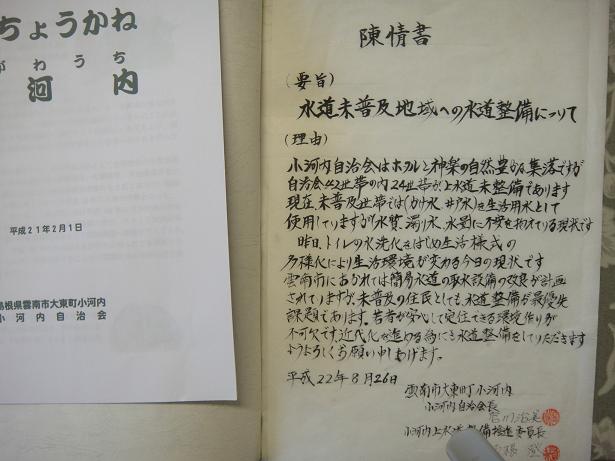 ちょうかね
がわうち
河内
平成21年2月1日
島根県雲南市大東町小河内
小河内自治会
陳情書
(要旨)
水道未普及地域への水道整備について
(理由)
小河内自治会はホタルと神楽の自然豊かな集落ですが
自治会42世帯の内24世帯が上水道未整備であります
現在、未普及世帯では(かけ水、井戸水)を生活用水として
使用していますが(水質、濁り水、水量)に不安を抱えている現状です
昨日、トイレの水洗化をはじめ生活様式の
多様化により生活環境が変わる今日の現状です
雲南市におかれては簡易水道の取水設備の改良が計画
されていますが、未普及の住民としても、水道整備が最優先
課題であります。若者が安心して定住できる環境作りが
不可欠です、近代化を進める為にも水道整備をしていただきます
ようよろしくお願い申しあげます。
平成22年8月26日
雲南市大東町小河内
小河内自治会長
小河内上水道整備推進委員長